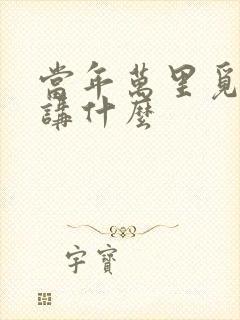 當年萬里覓
講什麼
字寶